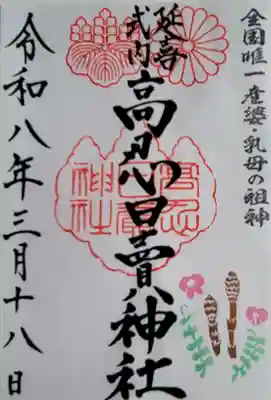 全国唯一産婆・乳母の祖神
延喜
式内
高忍日賣神社
令和八年三月十八日